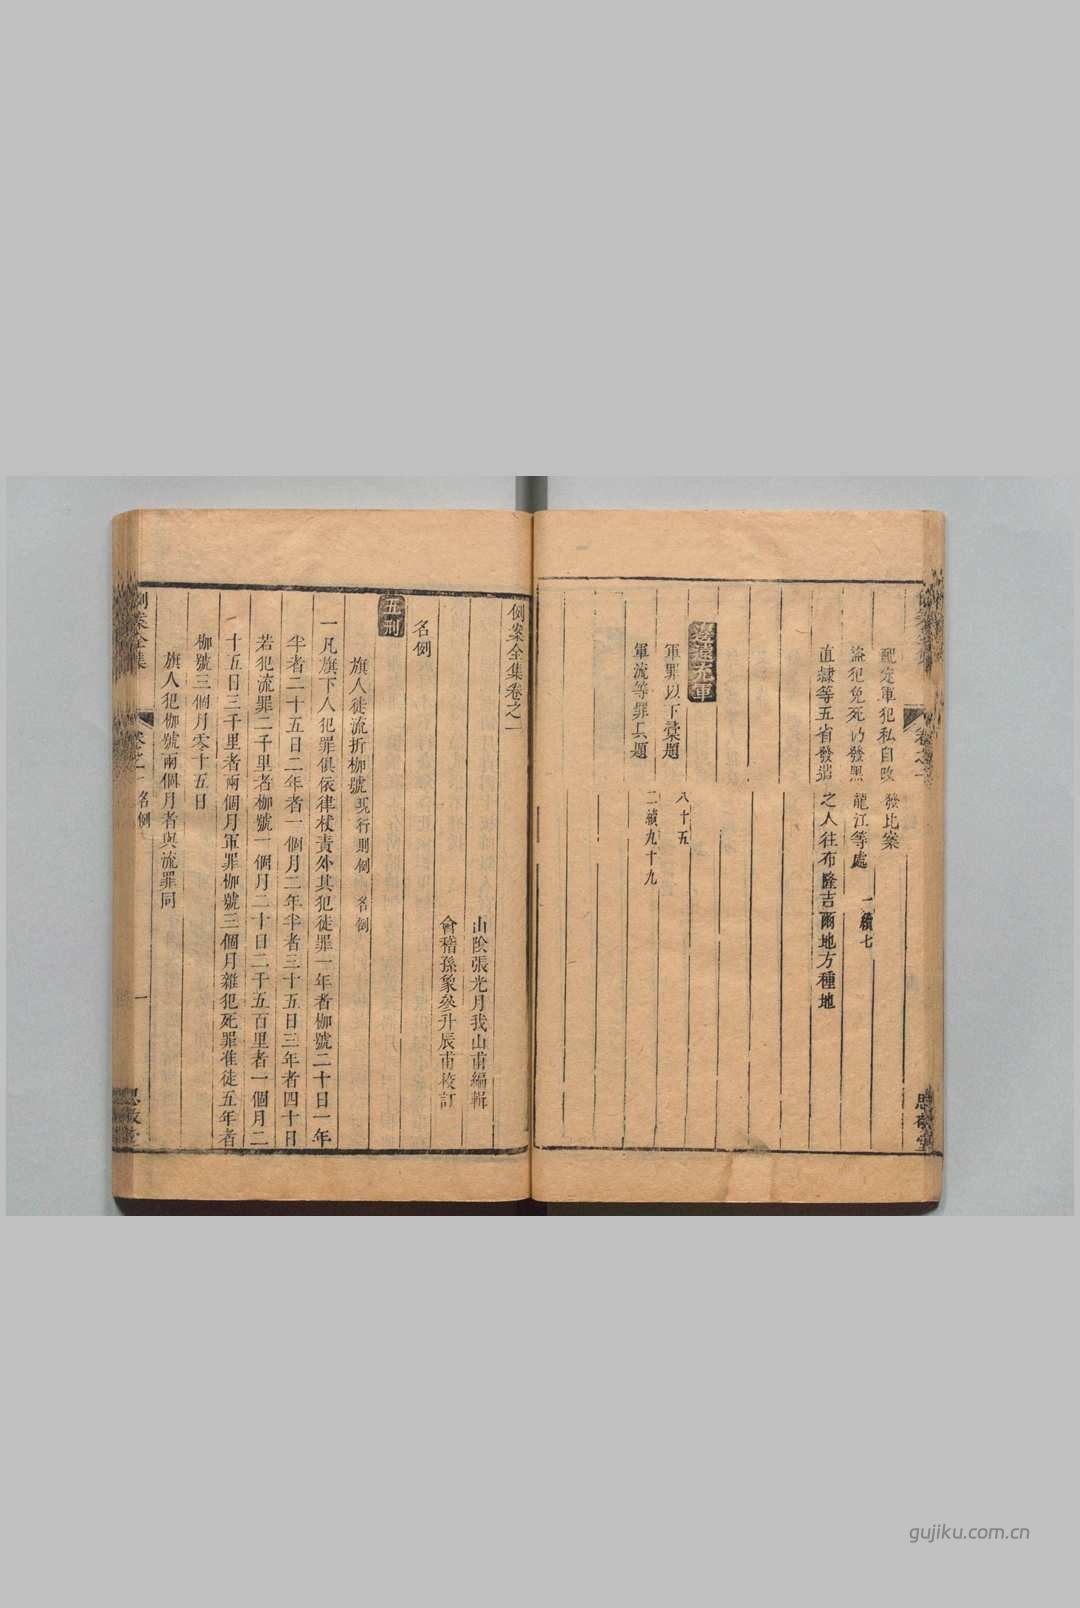 配定軍犯私自改發比案
盜犯免死仍發黑龍江等處 一續七
直隸等五省發遣之人往布隆吉爾地方種地
邊遠充軍
軍罪以下彙題 八十五
軍流等罪具題 二續九十九
思敬堂
例案全集卷之一
山陰張光月我山甫編輯
會稽孫象參升辰甫校訂
名例
五刑
旗人徒流折枷號 現行則例 名例
一凡旗下人犯罪俱依律杖責外其犯徒罪一年者枷號二十日一年
半者二十五日二年者一個月二年半者三十五日三年者四十日
若犯流罪二千里者枷號一個月二十日二千五百里者一個月二
十五日三千里者兩個月軍罪枷號三個月雜犯死罪准徒五年者
枷號三個月零十五日
旗人犯枷號兩個月者與流罪同
例案全集 卷之一 名例 一 思敬堂
gujiku.com.cn